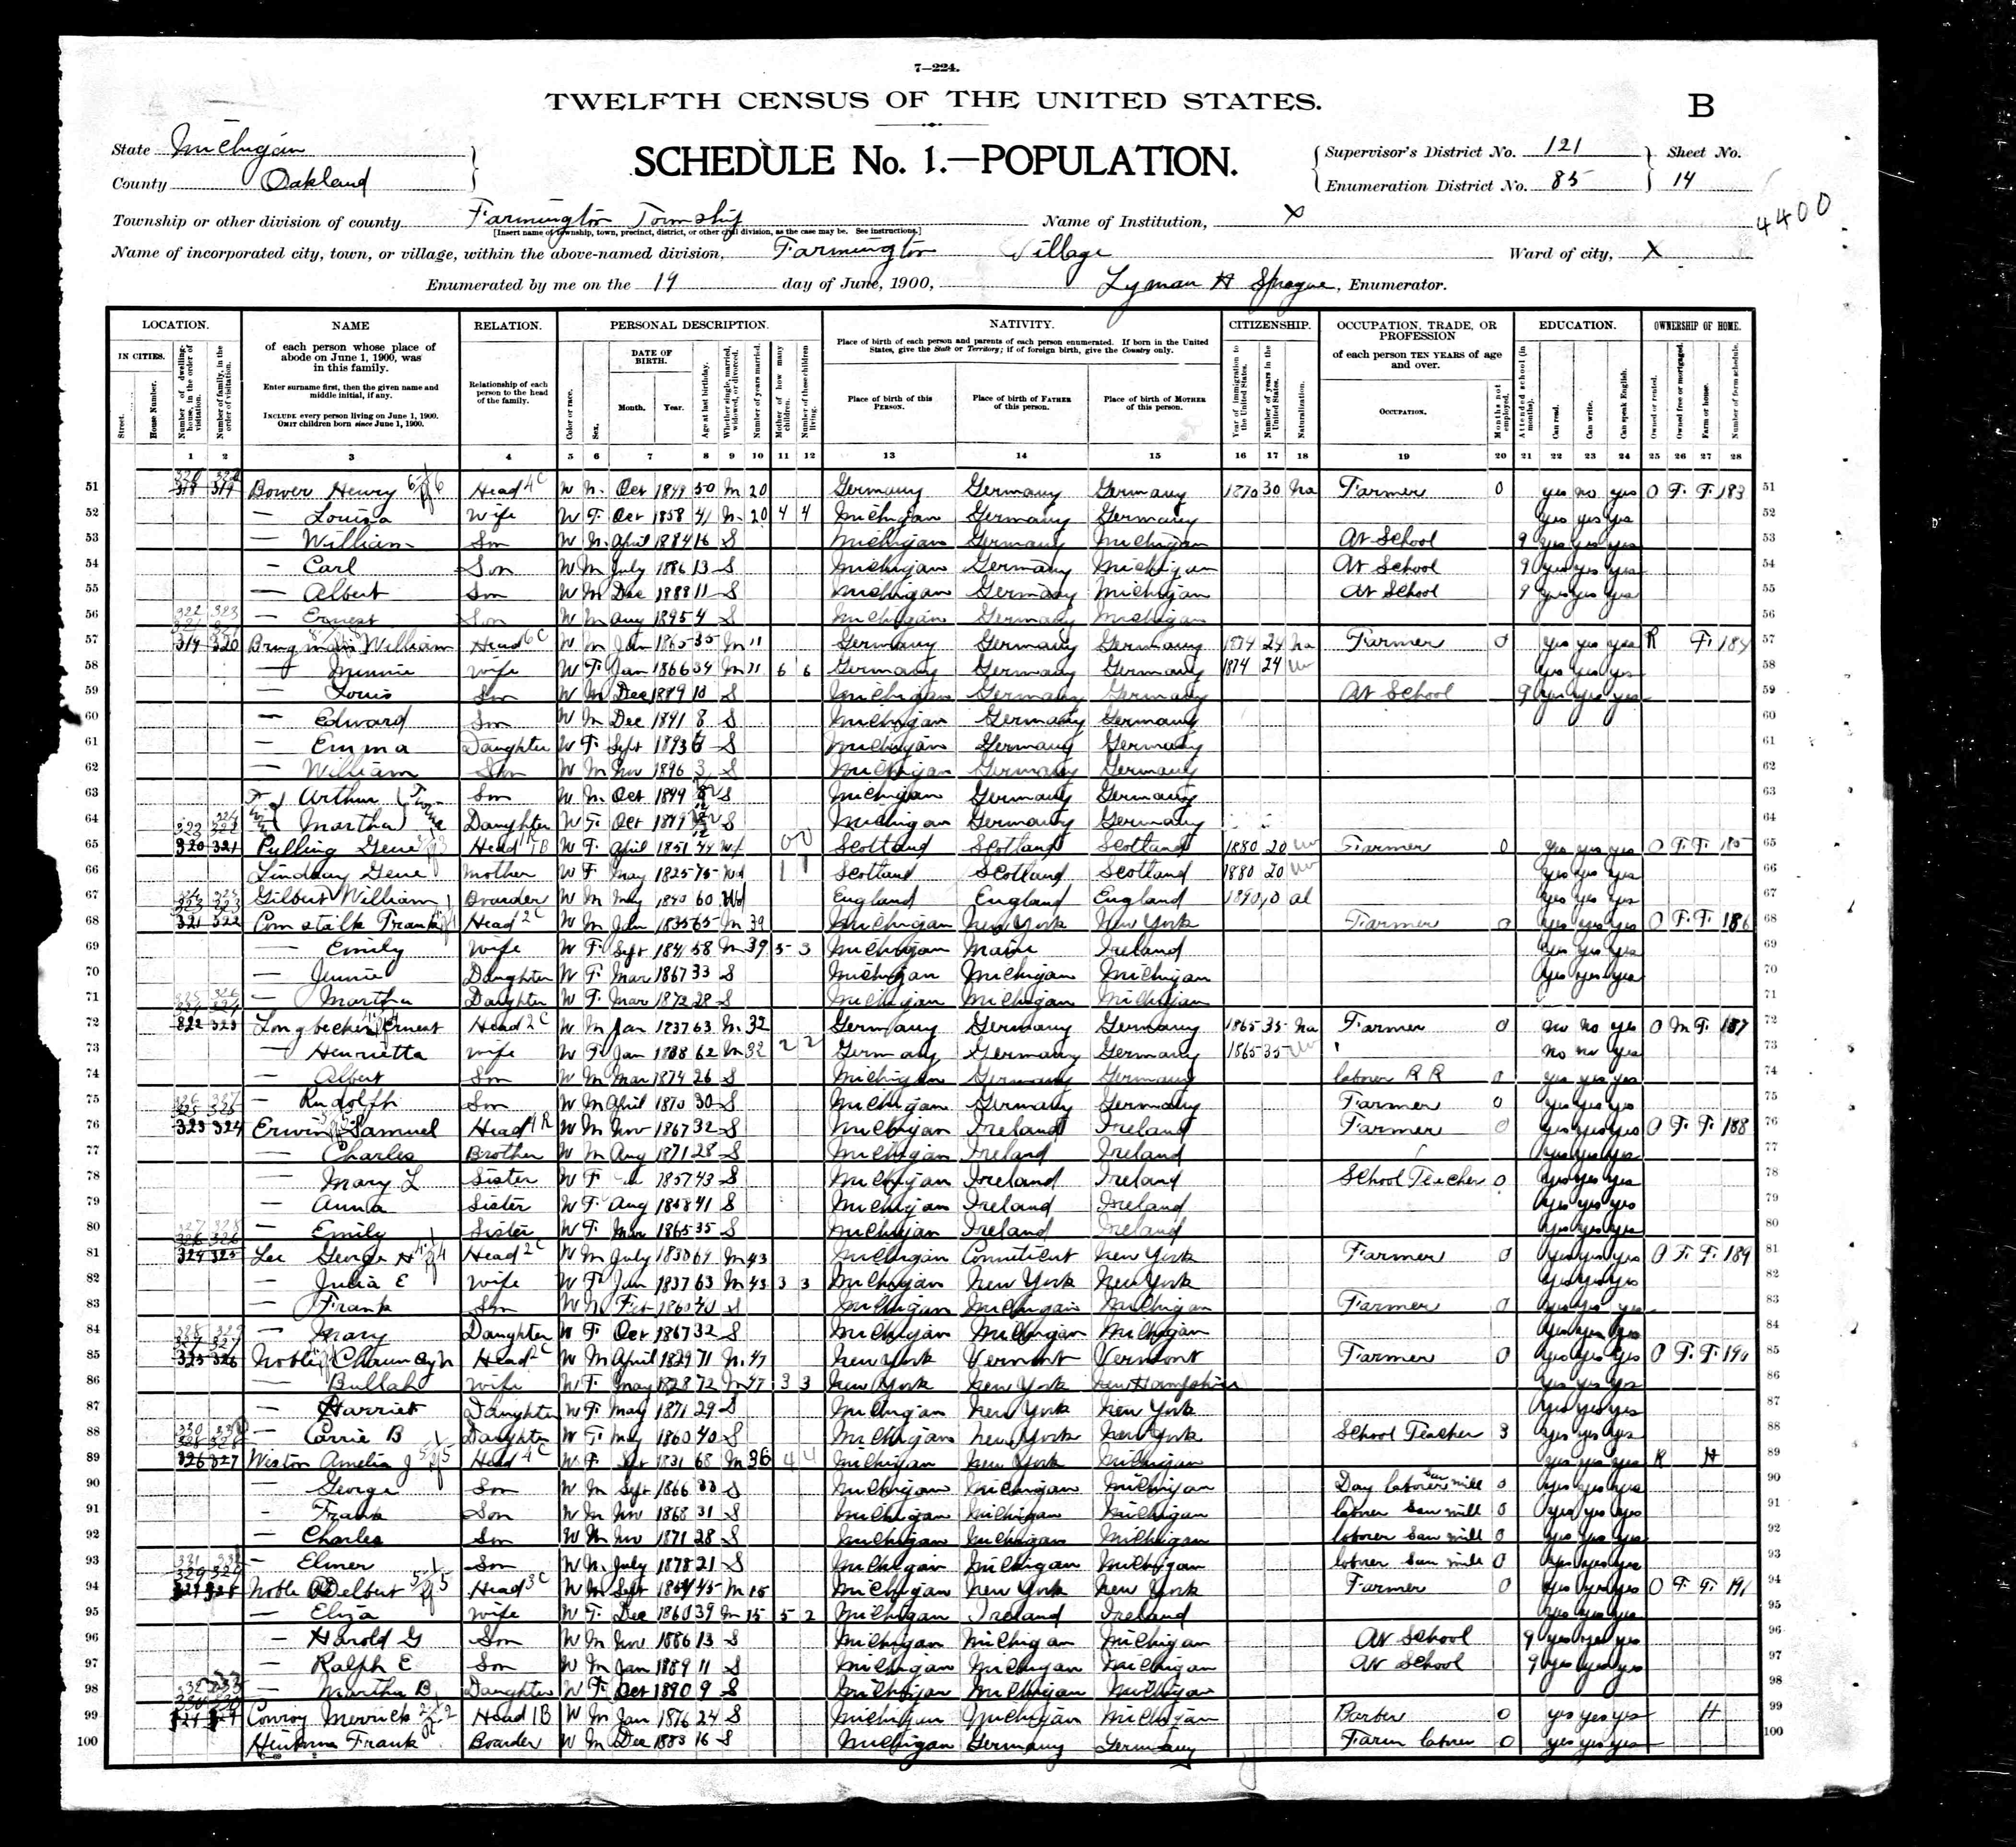 7—224.
TWELFTH CENSUS OF THE UNITED STATES.
B
State Michigan
County Oakland
SCHEDULE No. 1.—POPULATION.
Supervisor's District No. 121
Enumeration District No. 85
Sheet No.
14
4400
Township or other division of county Farmington Township Name of Institution, X
[Insert name of township, town, precinct, district, or other civil division, as the case may be. See instructions.]
Name of incorporated city, town, or village, within the above-named division, Farmington Village Ward of city, X
Enumerated by me on the 19 day of June, 1900, Lyman H Sprague, Enumerator.
LOCATION. NAME RELATION. PERSONAL DESCRIPTION. NATIVITY. CITIZENSHIP. OCCUPATION, TRADE, OR PROFESSION EDUCATION. OWNERSHIP OF HOME.
IN CITIES.
Street.
House Number.
Number of dwelling-house, in the order of visitation.
Number of family, in the order of visitation.
of each person whose place of abode on June 1, 1900, was in this family.
Enter surname first, then the given name and middle initial, if any.
INCLUDE every person living on June 1, 1900.
OMIT children born since June 1, 1900.
Relationship of each person to the head of the family.
Color or race.
Sex.
DATE OF BIRTH.
Month. Year.
Age at last birthday.
Whether single, married, widowed, or divorced.
Number of years married.
Mother of how many children.
Number of these children living.
Place of birth of each person and parents of each person enumerated. If born in the United States, give the State or Territory; if of foreign birth, give the Country only.
Place of birth of this PERSON.
Place of birth of FATHER of this person.
Place of birth of MOTHER of this person.
Year of immigration to the United States.
Number of years in the United States.
Naturalization.
of each person TEN YEARS of age and over.
OCCUPATION.
Months not employed.
Attended school (in months).
Can read.
Can write.
Can speak English.
Owned or rented.
Owned free or mortgaged.
Farm or house.
Number of farm schedule.
1 2 3 4 5 6 7 8 9 10 11 12 13 14 15 16 17 18 19 20 21 22 23 24 25 26 27 28
51 318 319 Bower Henry Head W M Oct 1849 50 M 20 Germany Germany Germany 1870 30 Na Farmer 0 yes no yes O F F 183 51
52 — Louisa Wife W F Oct 1858 41 M 20 4 4 Michigan Germany Germany yes yes yes 52
53 — William Son W M April 1884 16 S Michigan Germany Michigan At School 9 yes yes yes 53
54 — Carl Son W M July 1886 13 S Michigan Germany Michigan At School 9 yes yes yes 54
55 — Albert Son W M Dec 1888 11 S Michigan Germany Michigan At School 9 yes yes yes 55
56 — Ernest Son W M Aug 1895 4 S Michigan Germany Michigan 56
57 319 320 Bringman William Head W M Jan 1865 35 M 11 Germany Germany Germany 1874 24 Na Farmer 0 yes yes yes R F 184 57
58 — Minnie Wife W F Jan 1866 34 M 11 6 6 Germany Germany Germany 1874 24 yes yes yes 58
59 — Louis Son W M Dec 1889 10 S Michigan Germany Germany At School 9 yes yes yes 59
60 — Edward Son W M Dec 1891 8 S Michigan Germany Germany 60
61 — Emma Daughter W F Sept 1893 6 S Michigan Germany Germany 61
62 — William Son W M Nov 1896 3 S Michigan Germany Germany 62
63 Arthur Son W M Oct 1899 S Michigan Germany Germany 63
64 Martha Daughter W F Oct 1899 S Michigan Germany Germany 64
65 320 321 Pulling Gene Head W F April 1851 49 Wd 0 0 Scotland Scotland Scotland 1880 20 Farmer 0 yes yes yes O F F 185 65
66 Lindsay Gene Mother W F May 1825 75 Wd 1 1 Scotland Scotland Scotland 1880 20 yes yes yes 66
67 Gilbert William Boarder W M May 1840 60 Wd England England England 1890 10 al yes yes yes 67
68 321 322 Comstalk Frank Head W M Jan 1835 65 M 39 Michigan New York New York Farmer 0 yes yes yes O F F 186 68
69 — Emily Wife W F Sept 1841 58 M 39 5 3 Michigan Maine Ireland yes yes yes 69
70 — Jennie Daughter W F Mar 1867 33 S Michigan Michigan Michigan yes yes yes 70
71 — Martha Daughter W F Mar 1872 28 S Michigan Michigan Michigan 71
72 322 323 Longbecker Ernest Head W M Jan 1837 63 M 32 Germany Germany Germany 1865 35 Na Farmer 0 no no yes O M F 187 72
73 — Henrietta Wife W F Jan 1838 62 M 32 2 2 Germany Germany Germany 1865 35 no no yes 73
74 — Albert Son W M Mar 1874 26 S Michigan Germany Germany laborer R R 0 yes yes yes 74
75 — Rudolph Son W M April 1870 30 S Michigan Germany Germany Farmer 0 yes yes yes 75
76 323 324 Erwin Samuel Head W M Nov 1867 32 S Michigan Ireland Ireland Farmer 0 yes yes yes O F F 188 76
77 — Charles Brother W M Aug 1871 28 S Michigan Ireland Ireland yes yes yes 77
78 — Mary L Sister W F 1857 43 S Michigan Ireland Ireland School Teacher 0 yes yes yes 78
79 — Anna Sister W F Aug 1858 41 S Michigan Ireland Ireland yes yes yes 79
80 — Emily Sister W F Mar 1865 35 S Michigan Ireland Ireland yes yes yes 80
81 324 325 Lee George H Head W M July 1830 69 M 43 Michigan Conniticut New York Farmer 0 yes yes yes O F F 189 81
82 — Julia E Wife W F Jan 1837 63 M 43 3 3 Michigan New York New York yes yes yes 82
83 — Frank Son W M 1860 40 S Michigan Michigan Michigan Farmer 0 yes yes yes 83
84 — Mary Daughter W F Oct 1867 32 S Michigan Michigan Michigan yes yes yes 84
85 325 326 Noble Chauncy Head W M April 1829 71 M 47 New York Vermont Vermont Farmer 0 yes yes yes O F F 190 85
86 — Bullah Wife W F May 1828 72 M 47 3 3 New York New York New Hampshire yes yes yes 86
87 — Harriet Daughter W F May 1871 29 S Michigan New York New York yes yes yes 87
88 — Carrie B Daughter W F May 1860 40 S Michigan New York New York School Teacher 3 yes yes yes 88
89 326 327 Wiston Amelia J Head W F Sept 1831 68 M 36 4 4 Michigan New York Michigan yes yes yes R H 89
90 — George Son W M Sept 1866 33 S Michigan Michigan Michigan Day laborer Saw mill 0 yes yes yes 90
91 — Frank Son W M Nov 1868 31 S Michigan Michigan Michigan laborer Saw mill 0 yes yes yes 91
92 — Charles Son W M Nov 1871 28 S Michigan Michigan Michigan laborer Saw mill 0 yes yes yes 92
93 — Elmer Son W M July 1878 21 S Michigan Michigan Michigan laborer Saw mill 0 yes yes yes 93
94 Noble Delbert Head W M Sept 1854 45 M 15 Michigan New York New York Farmer 0 yes yes yes O F F 191 94
95 — Eliza Wife W F Dec 1860 39 M 15 5 2 Michigan Ireland Ireland yes yes yes 95
96 — Harold G Son W M Nov 1886 13 S Michigan Michigan Michigan At School 9 yes yes yes 96
97 — Ralph E Son W M Jan 1889 11 S Michigan Michigan Michigan At School 9 yes yes yes 97
98 — Martha B Daughter W F Oct 1890 9 S Michigan Michigan Michigan 98
99 Conroy Merrick Head W M Jan 1876 24 S Michigan Michigan Michigan Barber 0 yes yes yes H 99
100 Frank Boarder W M Dec 1883 16 S Michigan Germany Germany Farm laborer 0 yes yes yes 100